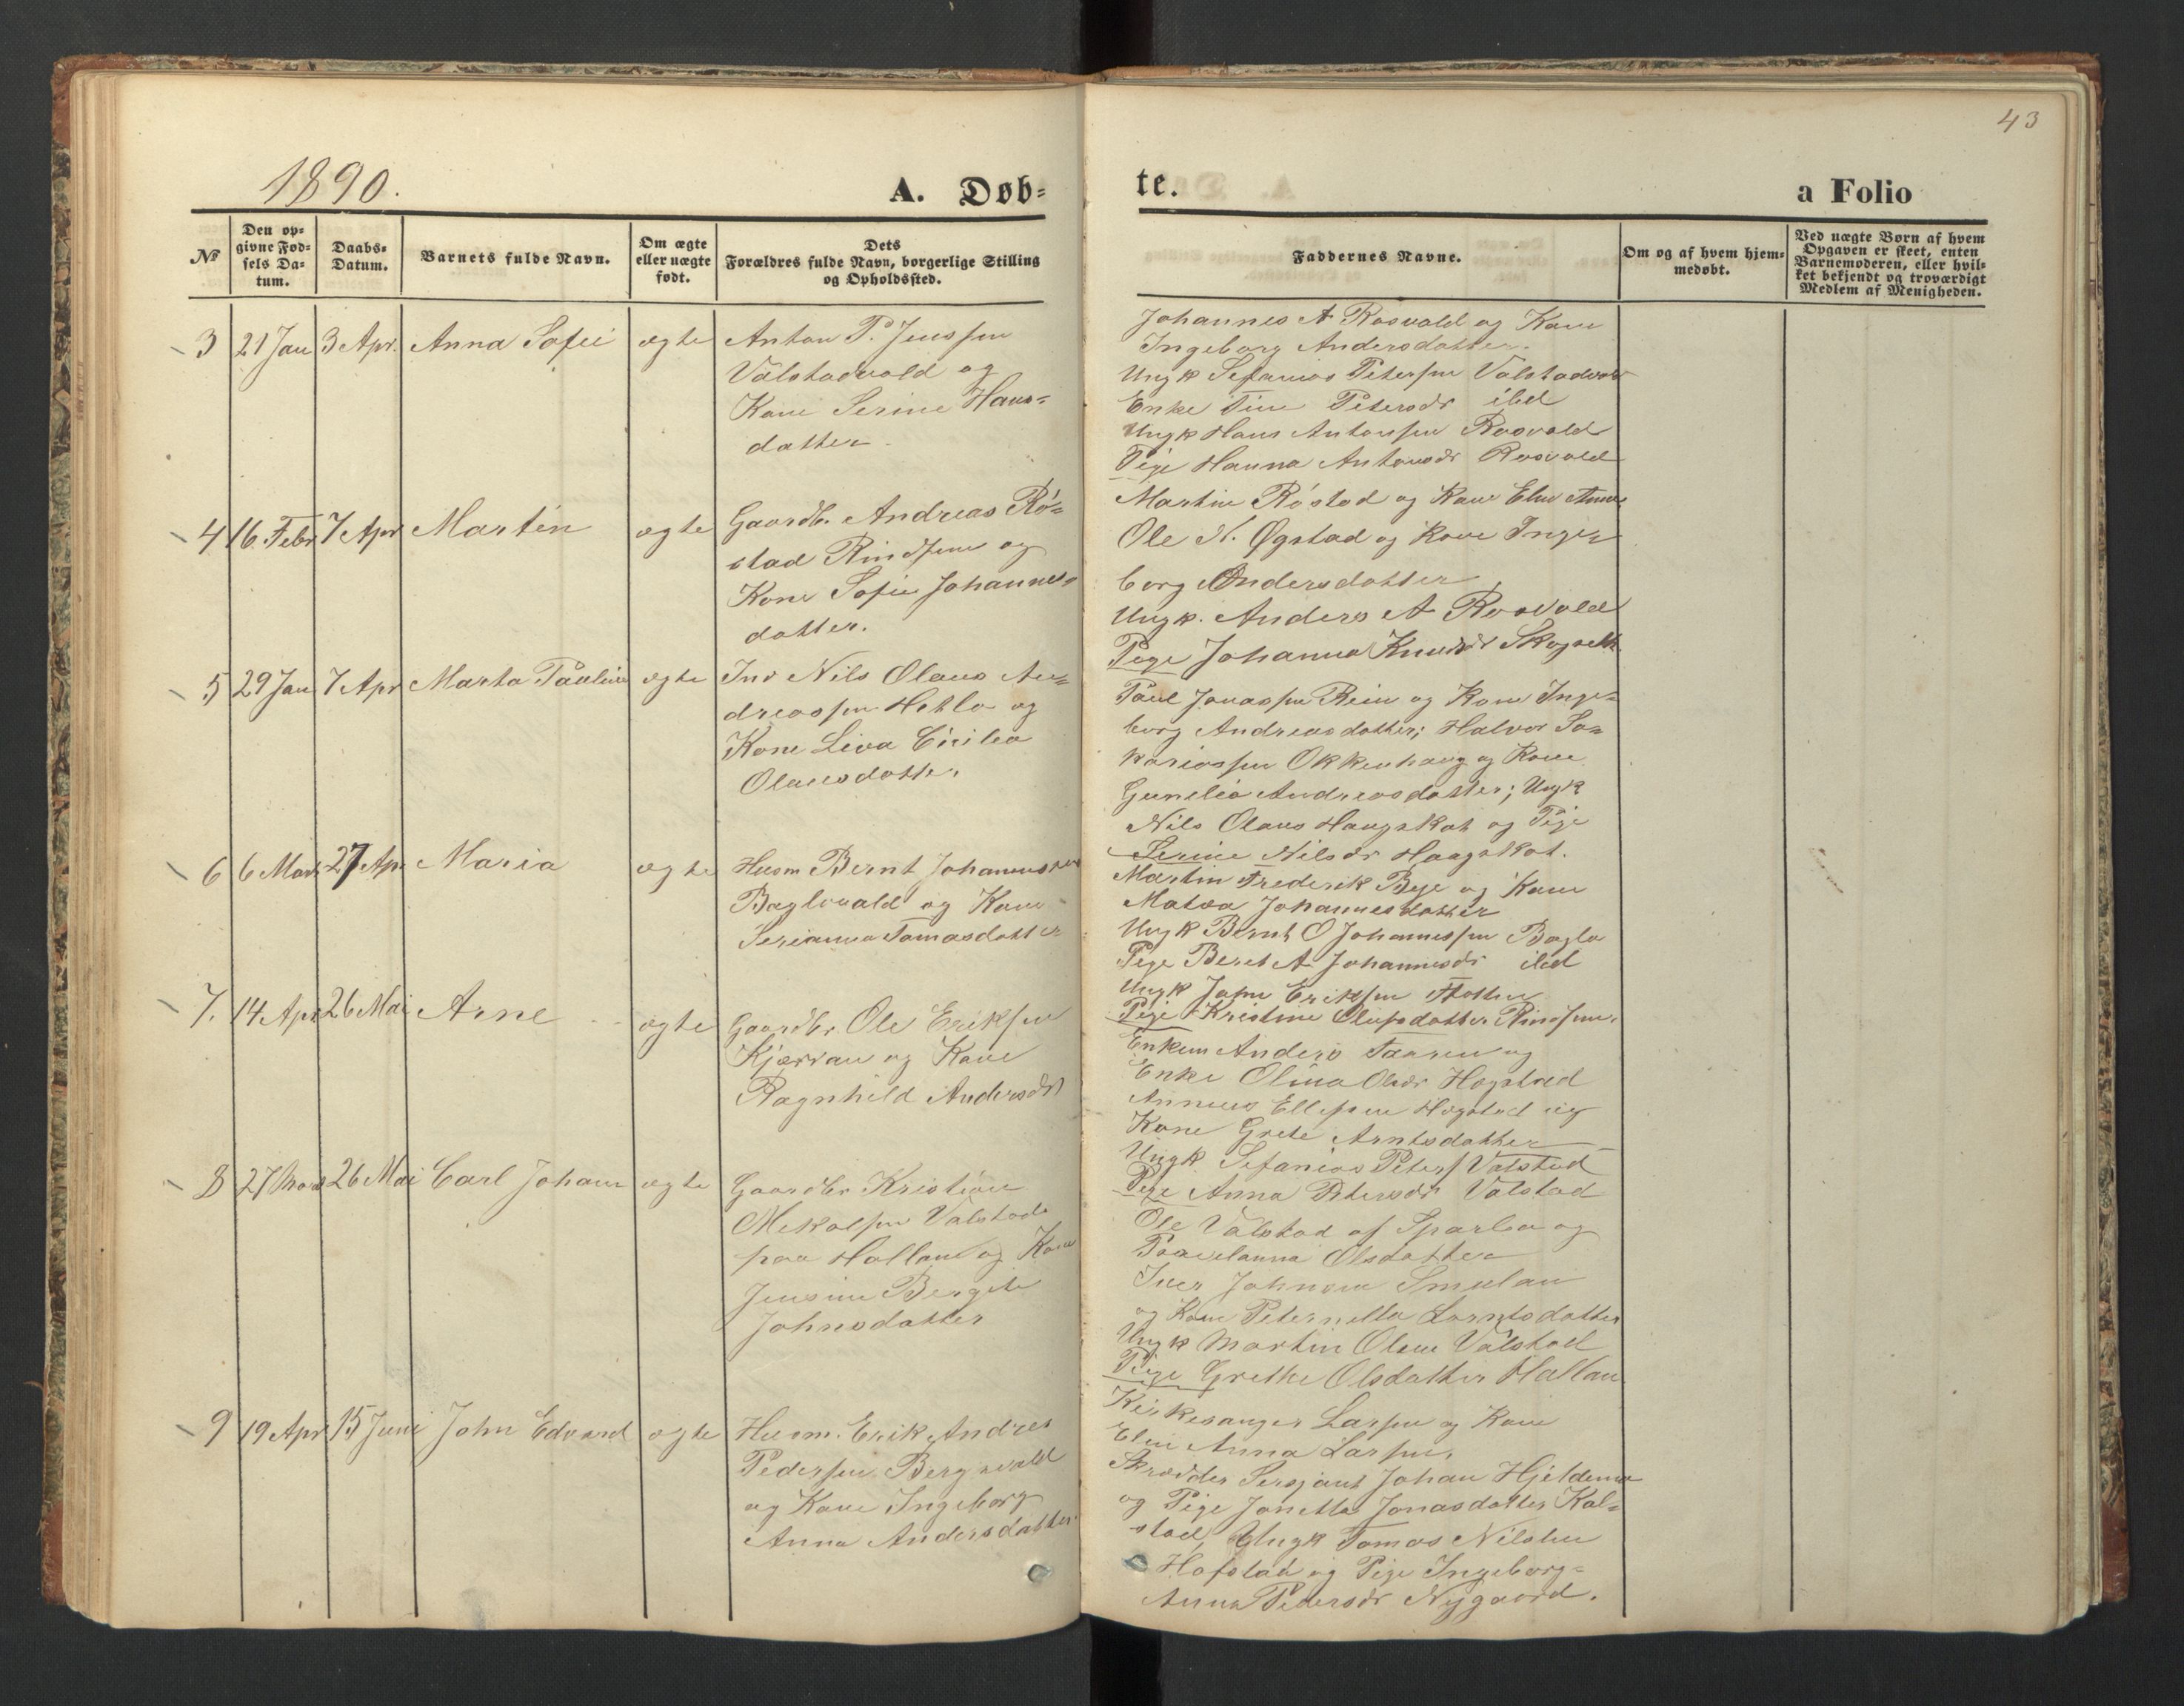 43
1890.
A. Døb=
te.
a Folio
No
Den op=
givne Fød=
sels Da=
tum.
Daabs=
Datum.
Barnets fulde Navn.
Om ægte
eller uægte
født.
Dets
Forældres fulde Navn, borgerlige Stilling
og Opholdssted.
Faddernes Navne.
Om og af hvem hjem=
medøbt.
Ved uægte Børn af hvem
Opgaven er skeet, enten
Barnemoderen, eller hvil=
ket bekjendt og troværdigt
Medlem af Menigheden.
3 21 Jan 3 Apr. Anna Sofie ægte Anton P. Jenssen
Valstadvald og
Kone Serine Hans=
datter
Johannes A Rosvold og Kone
Ingeborg Andersdatter.
Ungk Sefanias Petersen Valstadvald
Enke Petersdr ibd
Ungk Hans Antonsen Rosvold
Pige Hanna Antonsdr Rosvold
4 16 Febr 7 Apr Martin ægte Gaardbr. Andreas Rö=
stad Rindsem og
Kone Sofie Johannes=
datter.
Martin Röstad og Kone Elen Anna
Ole N. Øgstad og Kone Inge=
borg Andersdatter
Ungk. Anders A Rosvold
Pige Johanna Knudsdr
5 29 Jan 7 Apr Marta Pauline ægte Ind Nils Olaus An=
dreassen Hetlo og
Kone Liva
Olausdatter
Paul Jonassen Rein og Kone Inge=
borg Andreasdatter; Halvor Sa=
kariassen Okkenhaug og Kone
Gunelia Andreasdatter; Ungk
Nils Olaus Haugskot og Pige
Serine Nilsdr Haugskot.
6 6 Mars 27 Apr Maria ægte Husm Bernt Johannessen
Baglovald og Kone
Serianna Tomasdatter
Martin Frederik Bye og Kone
Johannesdatter
Ungk Bernt O Johannessen Baglo
Pige Beret A Johannesdr ibd
Ungk Eriksen
Pige Kristine Olufsdatter Rindsem.
7. 14 Apr 26 Mai Arne ægte Gaardbr. Ole Eriksen
Kjærran og Kone
Ragnhild Andersdr
Enkem Anders og
Enke Olina Olsdr Hogstad
Annæus Ellefsen Hogstad og
Kone Grete Arntsdatter
Ungk Sefanias Peters Valstad
Pige Anna Petersdr Valstad
8 27 Mars 26 Mai Carl Johan ægte Gaardbr Kristian
Mekalsen Valstad
paa Hallan og Kone
Jensine Bergete
Johnsdatter
Ole Valstad af Sparbu og
Olsdatter
Iver Johnsen Smulan
og Kone Peternella Lorntsdatter
Ungk Martin Olsen Valstad
Pige Grethe Olsdatter Hallan
9 19 Apr 15 Juni John Edvard ægte Husm. Erik Andreas
Pedersen Bergsvald
og Kone Ingeborg
Anna Andersdatter
Kirkesanger Larsen og Kone
Elen Anna Larsen,
Skrædder Sersjant Johan Hjeldemo
og Pige Jonetta Jonasdatter Kal=
stad, Ungk Tomas Nilsen
Hofstad og Pige Ingeborg=
Anna Pedersdr Nygaard.